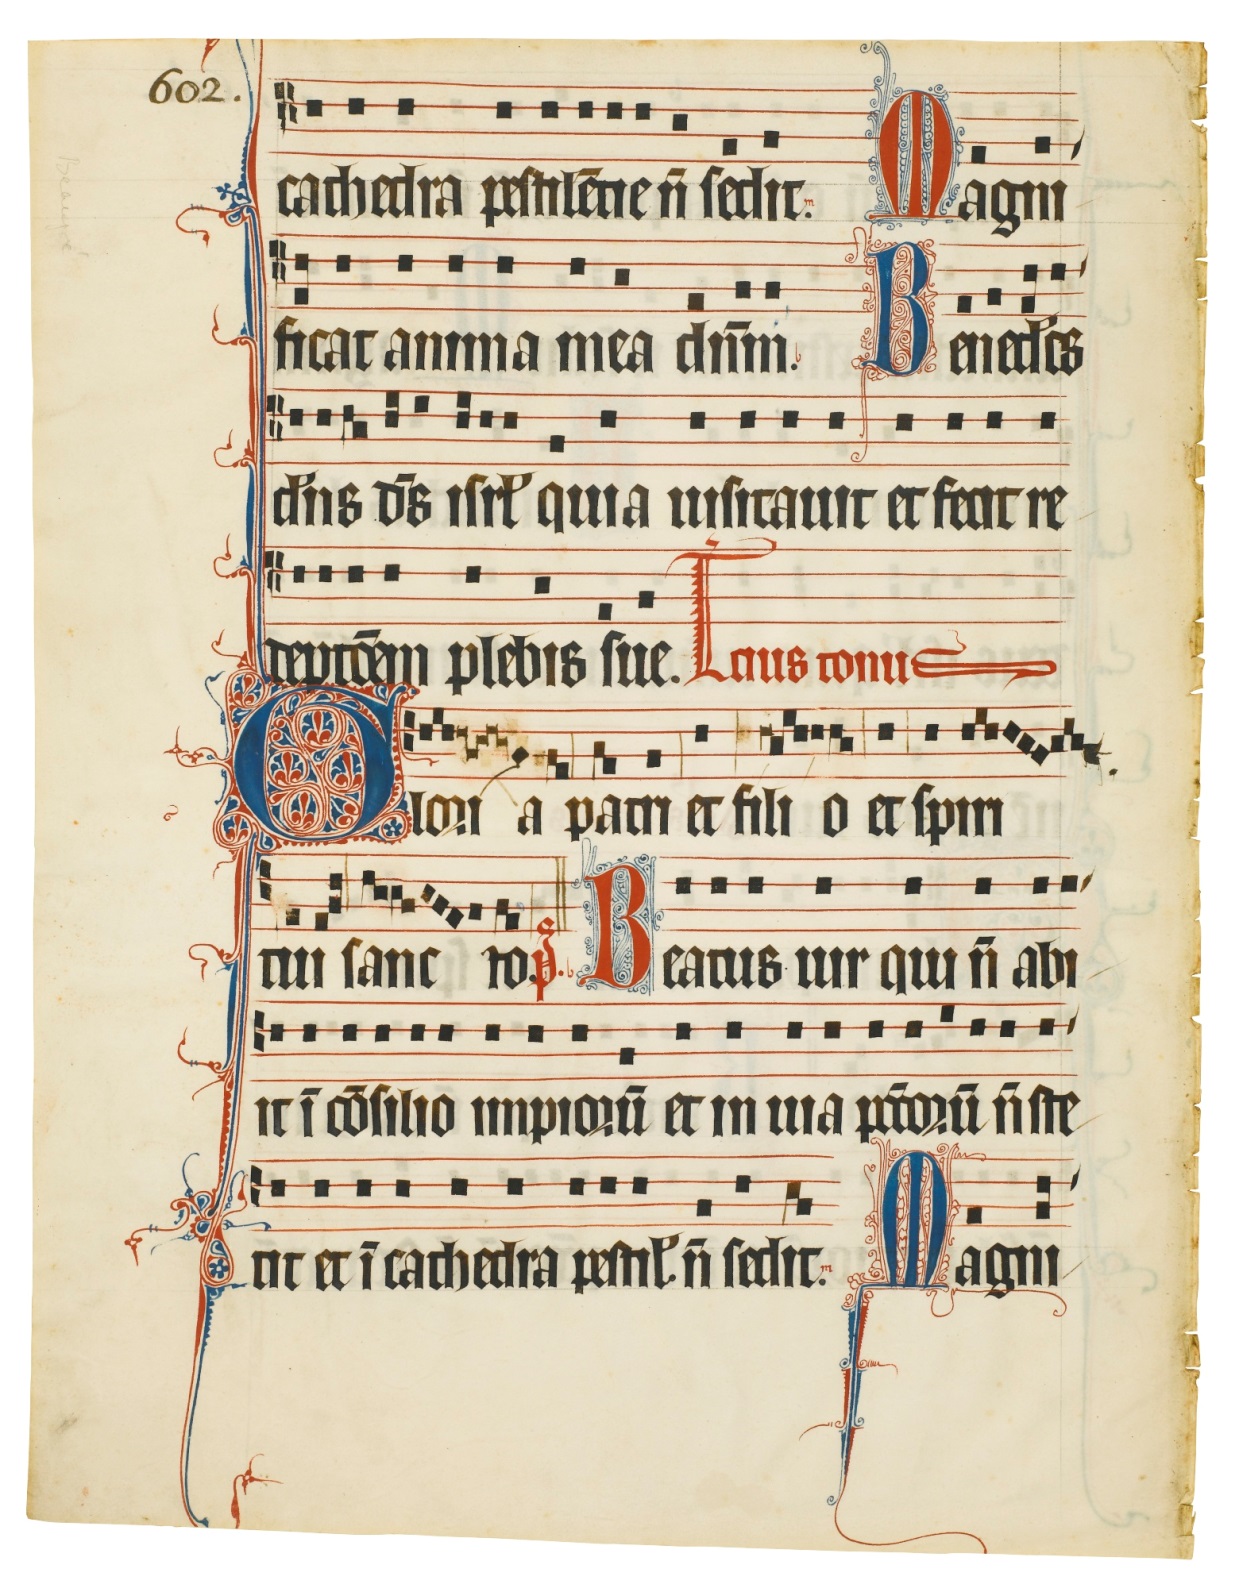 602.
cathedra pestilẽtie ñ sedit. Magni
ficat anima mea dñm. Benedc̃s
dñs dẽs isrl̃ quia uisitauit et fecit re
deptõem plebis sue. Tcius tonus
Glori a patri et fili o et spiri
tui sanc to. p̃s. Beatus uir qui ñ abi
it ĩ cõsilio impiorũ et in uia pctõrũ ñ ste
tit et ĩ cathedra pestil̃. ñ sedit. Magni